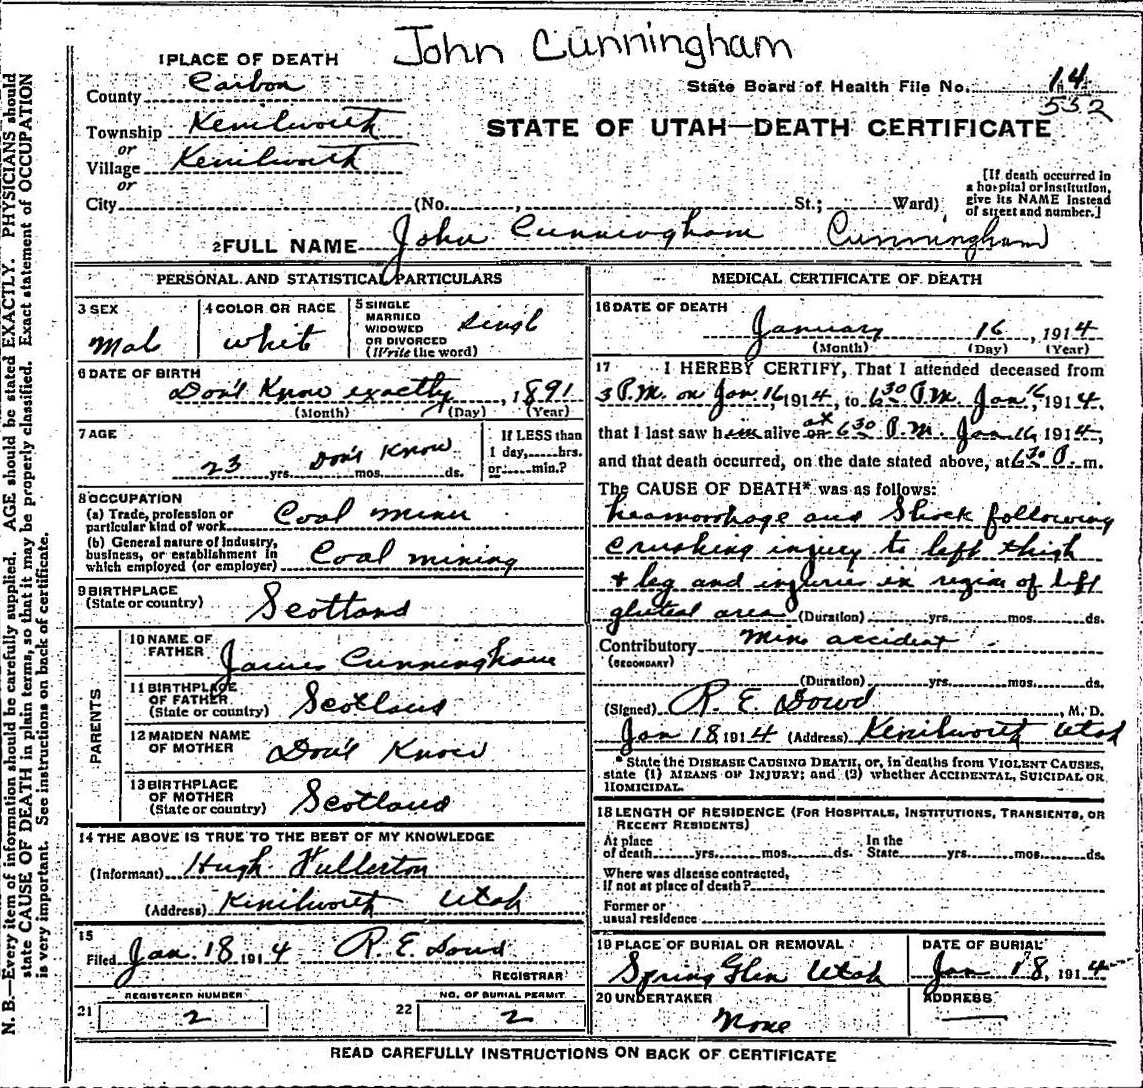 John Cunningham
1 PLACE OF DEATH
County Carbon
State Board of Health File No. 14
552
Township Kenilworth
or
Village Kenilworth
or
STATE OF UTAH—DEATH CERTIFICATE
City (No. , St.; Ward)
[If death occurred in a hospital or institution, give its NAME instead of street and number.]
2 FULL NAME John Cunningham Cunningham
PERSONAL AND STATISTICAL PARTICULARS
3 SEX
Mal
4 COLOR OR RACE
whit
5 SINGLE
MARRIED
WIDOWED
OR DIVORCED
(Write the word)
Singl
6 DATE OF BIRTH
Don't Know exactly, 1891
(Month) (Day) (Year)
7 AGE
23 yrs. Don't Know mos. ds.
If LESS than
1 day, hrs.
or min.?
8 OCCUPATION
(a) Trade, profession or
particular kind of work Coal miner
(b) General nature of industry,
business, or establishment in
which employed (or employer) Coal mining
9 BIRTHPLACE
(State or country) Scotland
PARENTS
10 NAME OF
FATHER James Cunningham
11 BIRTHPLACE
OF FATHER
(State or country) Scotland
12 MAIDEN NAME
OF MOTHER Don't Know
13 BIRTHPLACE
OF MOTHER
(State or country) Scotland
14 THE ABOVE IS TRUE TO THE BEST OF MY KNOWLEDGE
(Informant) Hugh Fullerton
(Address) Kenilworth Utah
15
Filed Jan. 18 1914 R. E. Dowd
REGISTRAR
REGISTERED NUMBER
21 2
NO. OF BURIAL PERMIT
22 2
MEDICAL CERTIFICATE OF DEATH
16 DATE OF DEATH
January 16, 1914
(Month) (Day) (Year)
17 I HEREBY CERTIFY, That I attended deceased from
3 P.M. on Jan. 16, 1914, to 6 30 P.M. Jan. 16, 1914,
that I last saw him alive on at 6 30 P.M. Jan 16, 1914,
and that death occurred, on the date stated above, at 6 30 P. m.
The CAUSE OF DEATH* was as follows:
heamorrhage and Shock following
crushing injury to left thigh
+ leg and injuries in region of left
gluteal area (Duration) yrs. mos. ds.
Contributory mine accident
(SECONDARY)
(Duration) yrs. mos. ds.
(Signed) R. E. Dowd, M. D.
Jan 18 1914 (Address) Kenilworth Utah
* State the DISEASE CAUSING DEATH, or, in deaths from VIOLENT CAUSES,
state (1) MEANS OF INJURY; and (2) whether ACCIDENTAL, SUICIDAL OR
HOMICIDAL.
18 LENGTH OF RESIDENCE (FOR HOSPITALS, INSTITUTIONS, TRANSIENTS, OR
RECENT RESIDENTS)
At place
of death yrs. mos. ds.
In the
State yrs. mos. ds.
Where was disease contracted,
if not at place of death?
Former or
usual residence
19 PLACE OF BURIAL OR REMOVAL
Spring Glen Utah
DATE OF BURIAL
Jan 18, 1914
20 UNDERTAKER
None
ADDRESS
READ CAREFULLY INSTRUCTIONS ON BACK OF CERTIFICATE
N. B.—Every item of information should be carefully supplied. AGE should be stated EXACTLY. PHYSICIANS should
state CAUSE OF DEATH in plain terms, so that it may be properly classified. Exact statement of OCCUPATION
is very important. See instructions on back of certificate.